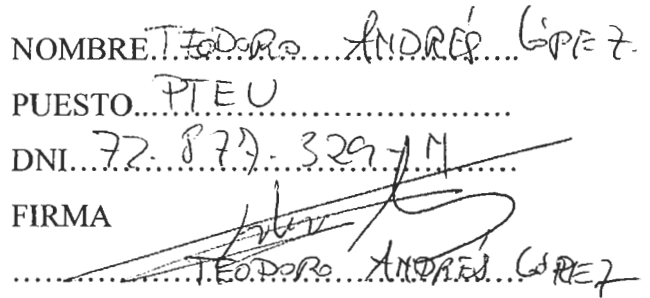 NOMBRE TEODORO ANDRÉS LÓPEZ.
PUESTO PTEU
DNI 72.877.329-M
FIRMA
TEODORO ANDRÉS LÓPEZ